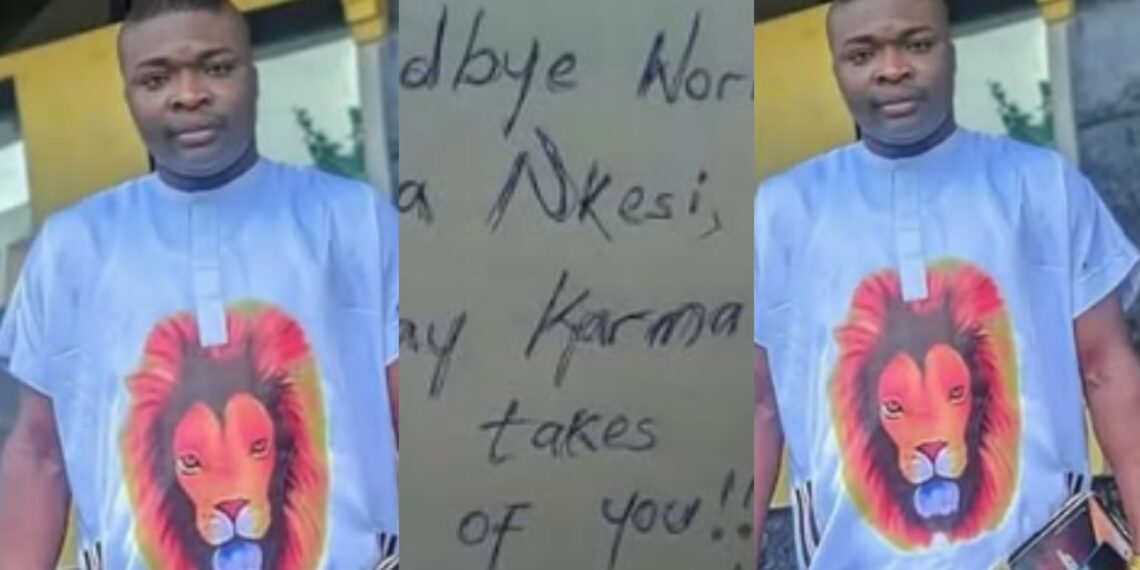 dbye Wor
a Nkesi,
ay Karma
takes
of you!!